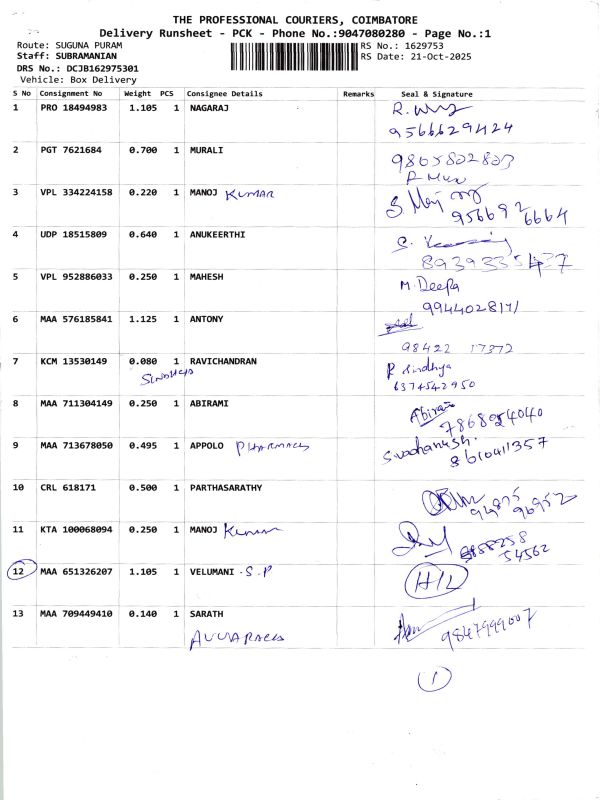 THE PROFESSIONAL COURIERS, COIMBATORE
Delivery Runsheet - PCK - Phone No.:9047080280 - Page No.:1
Route: SUGUNA PURAM RS No.: 1629753
Staff: SUBRAMANIAN RS Date: 21-Oct-2025
DRS No.: DCJB162975301
Vehicle: Box Delivery
S No Consignment No Weight PCS Consignee Details Remarks Seal & Signature
1 PRO 18494983 1.105 1 NAGARAJ
9566629424
2 PGT 7621684 0.700 1 MURALI 9865802803
3 VPL 334224158 0.220 1 MANOJ KUMAR
956692 6664
4 UDP 18515809 0.640 1 ANUKEERTHI
5 VPL 952886033 0.250 1 MAHESH M. Deepa
9944028171
6 MAA 576185841 1.125 1 ANTONY
98422 17372
7 KCM 13530149 0.080 1 RAVICHANDRAN R Sindhya
6374542950
8 MAA 711304149 0.250 1 ABIRAMI Abirami
7868054040
9 MAA 713678050 0.495 1 APPOLO PHARMACY
8610411357
10 CRL 618171 0.500 1 PARTHASARATHY
94875 96952
11 KTA 100068094 0.250 1 MANOJ Kumar
54562
12 MAA 651326207 1.105 1 VELUMANI .S.P H/L
13 MAA 709449410 0.140 1 SARATH 9847999007
1